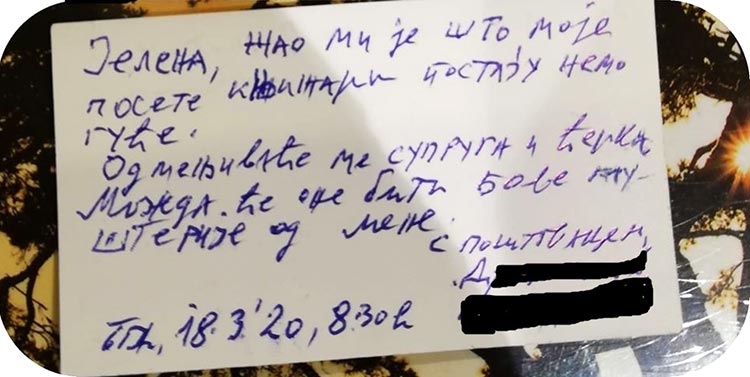 Јелена, жао ми је што моје
посете књижари постају немо
гуће.
Одмењиваће ме супруга и ћерка
Можда ће оне бити боље му-
штерије од мене.
С поштовањем,
18.3'20, 8.30h